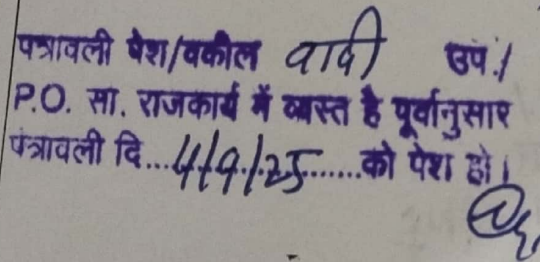 पत्रावली पेश/वकील वादी उप./
P.O. सा. राजकार्य में व्यस्त है पूर्वानुसार
पत्रावली दि...4/9/25......को पेश हो।